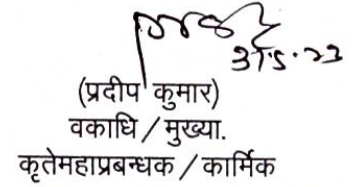 31.5.23
(प्रदीप कुमार)
वकाधि / मुख्या.
कृतेमहाप्रबन्धक / कार्मिक